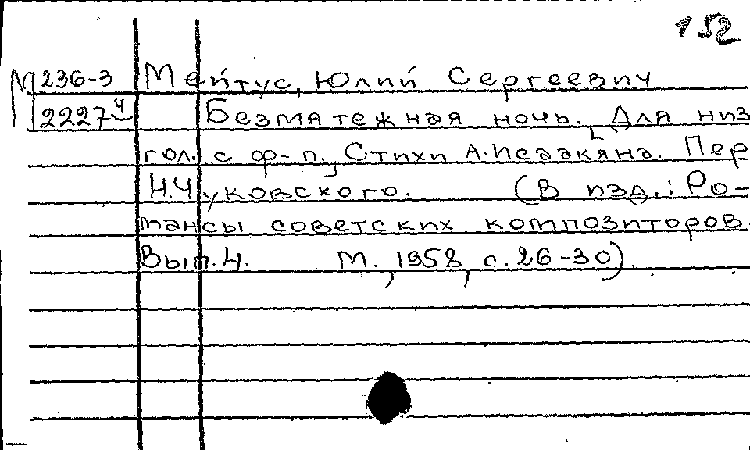 152
М 236-3 Мейтус, Юлий Сергеевич
2227 ч Безмятежная ночь. Для низ
гол. с ф-п., Стихи А. Исаакяна. Пер
Н. Чуковского. (В изд.: Ро-
мансы советских композиторов.
Вып. 4. М., 1958, с. 26-30)